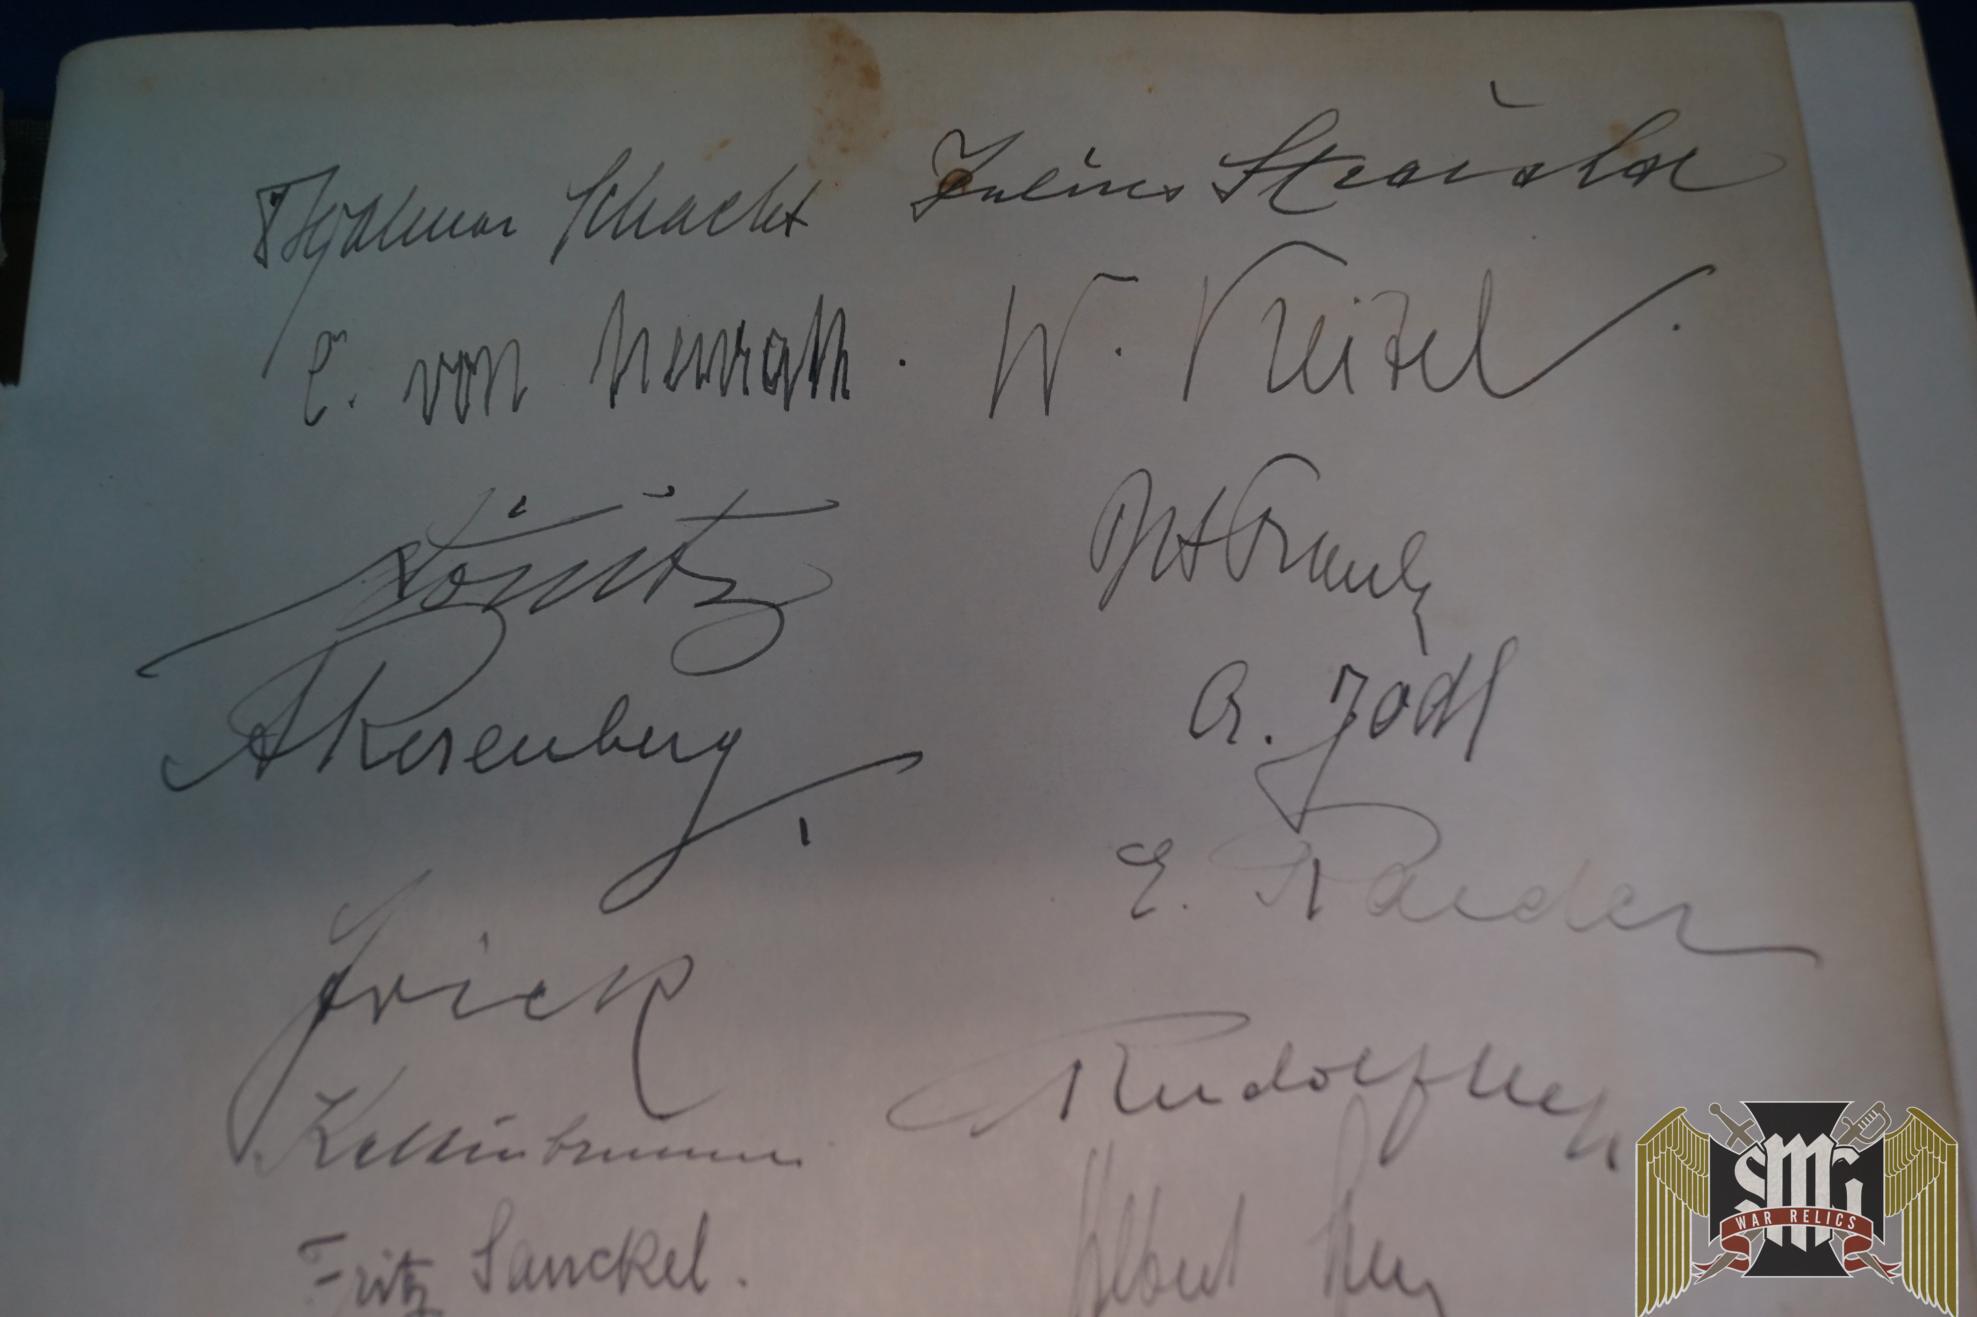 Hjalmar Schacht Julius Streicher
C. von Neurath. W. Keitel.
Dönitz Dr H Frank
ARosenberg A. Jodl
E. Raeder
Frick
Rudolf Hess
Kaltenbrunner
Fritz Sauckel. Albert Speer
SMGI
WAR RELICS